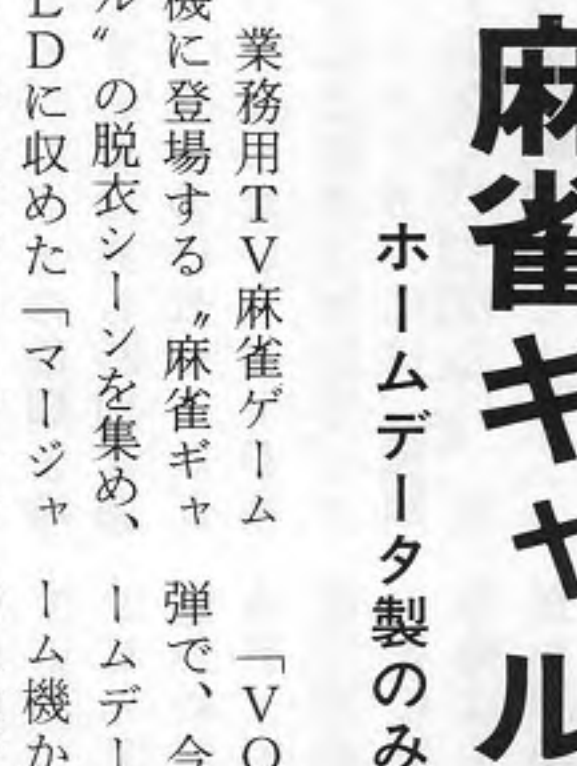 麻雀ギャル
ホームデータ製のみ
業務用TV麻雀ゲーム
機に登場する〝麻雀ギャ
ル〟の脱衣シーンを集め、
LDに収めた「マージャ
「VO
弾で、今
ームデー
ーム機か